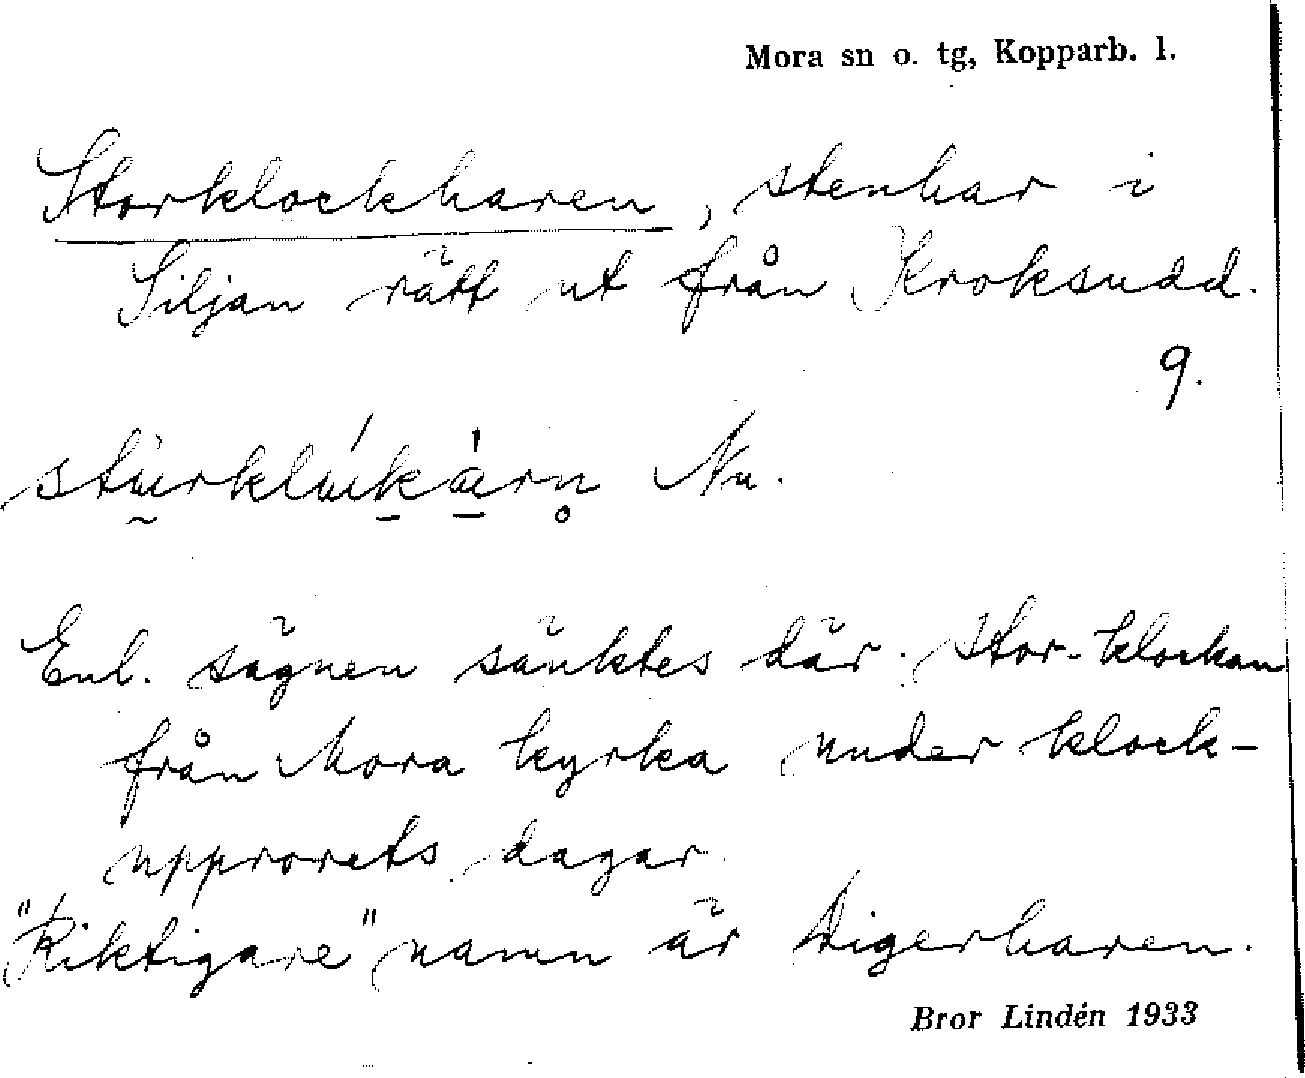 Mora sn o. tg, Kopparb. l.
Storklockharen, stenhar i
Siljan rätt ut från Kroksudd.
9.
Nu.
Enl. sägnen sänktes där stor-klockan
från Mora kyrka under klock-
upprorets dagar.
"Riktigare" namn är Digerharen.
Bror Lindén 1933